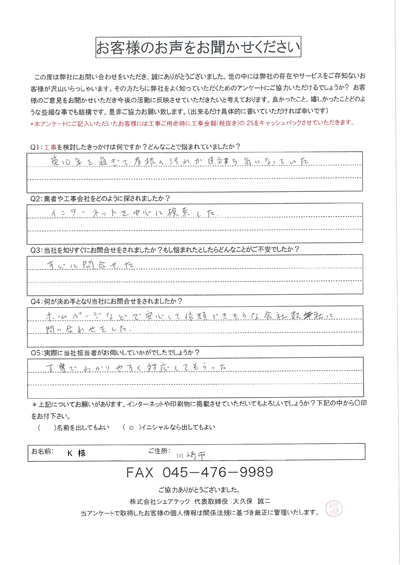 お客様のお声をお聞かせください
この度は弊社にお問い合わせをいただき、誠にありがとうございました。世の中には弊社の存在やサービスをご存知ないお
客様が沢山いらっしゃいます。その方たちに弊社をよく知っていただくためのアンケートにご協力いただけるでしょうか？ お客
様のご意見をお聞かせいただき今後の活動に反映させていただきたいと考えております。良かったこと、嬉しかったことどのよ
うな些細な事でも結構です。是非ご協力お願い致します。（出来るだけ具体的に書いていただければ幸いです）
*本アンケートにご記入いただいたお客様には工事ご用命時に工事金額(税抜き)の 2%をキャッシュバックさせていただきます。
Q1：工事を検討したきっかけは何ですか？どんなことで悩まれていましたか？
築10年を過ぎて屋根の汚れが目立ち気になっていた
Q2：業者や工事会社をどのように探されましたか？
インターネットを中心に検索した
Q3：当社を知りすぐにお問合せをされましたか？もし悩まれたとしたらどんなことがご不安でしたか？
すぐに問合せた
Q4：何が決め手となり当社にお問合せをされましたか？
ホームページなどで安心して依頼できそうな会社数社に
問い合わせをした
Q5：実際に当社担当者がお伺いしていかがでしたでしょうか？
丁寧でわかりやすく対応してもらった
＊上記についてお願いがあります。インターネットや印刷物に掲載させていただいてもよろしいでしょうか？下記の中から〇印
をお付下さい。
（　　）名前を出してもよい　（ ○ ）イニシャルなら出してもよい
お名前： K 様　ご住所： 川崎市
FAX 045-476-9989
ご協力ありがとうございました。
株式会社シェアテック 代表取締役 大久保 誠二
当アンケートで取得したお客様の個人情報は関係法規に基づき厳正に管理いたします。